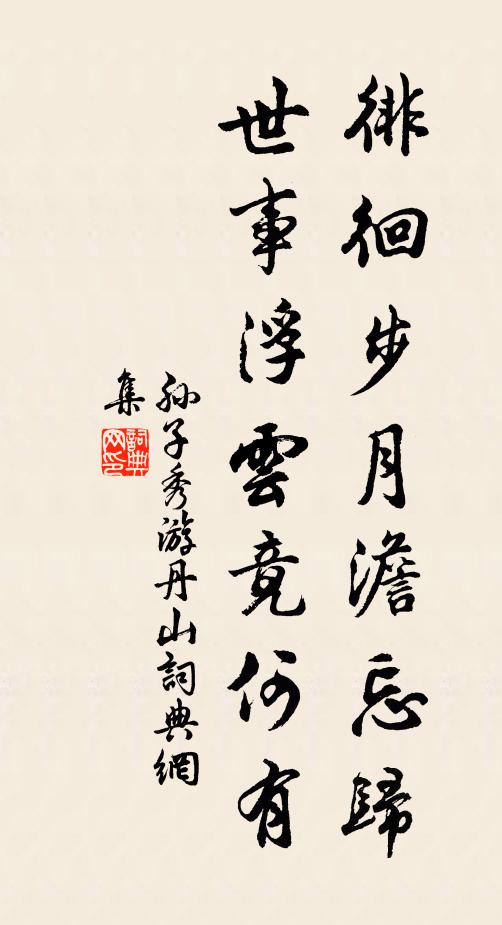 徘徊步月澹忘歸
世事浮雲竟何有
孙子秀游丹山詞典網
集
詞典
网印